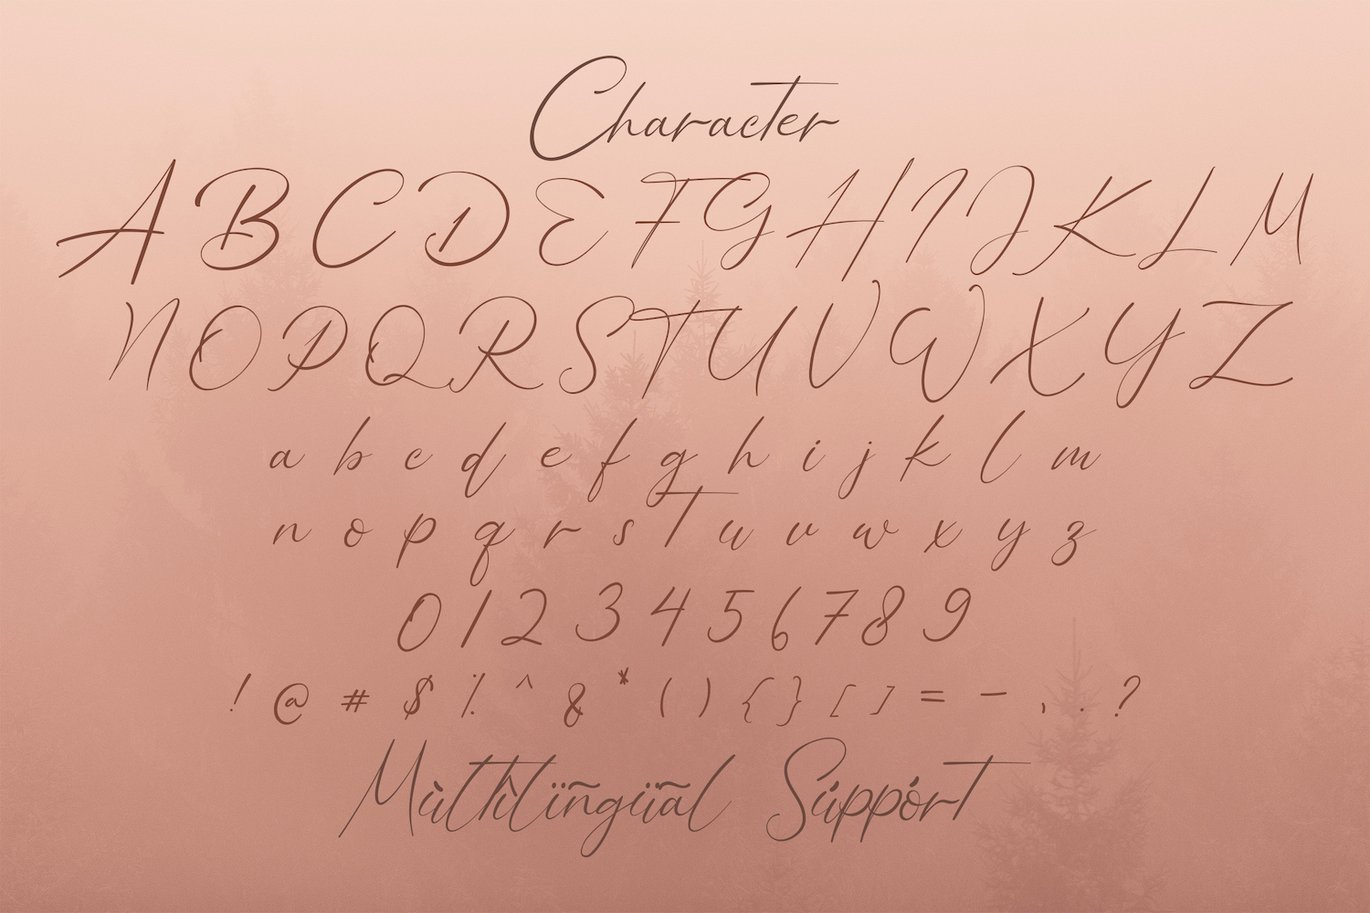 Character
A B C D E F G H I J K L M
N O P Q R S T U V W X Y Z
a b c d e f g h i j k l m
n o p q r s t u v w x y z
0 1 2 3 4 5 6 7 8 9
! @ # $ % ^ & * ( ) { } [ ] = - , . ?
Mùltìlïñgüãl Súppórt